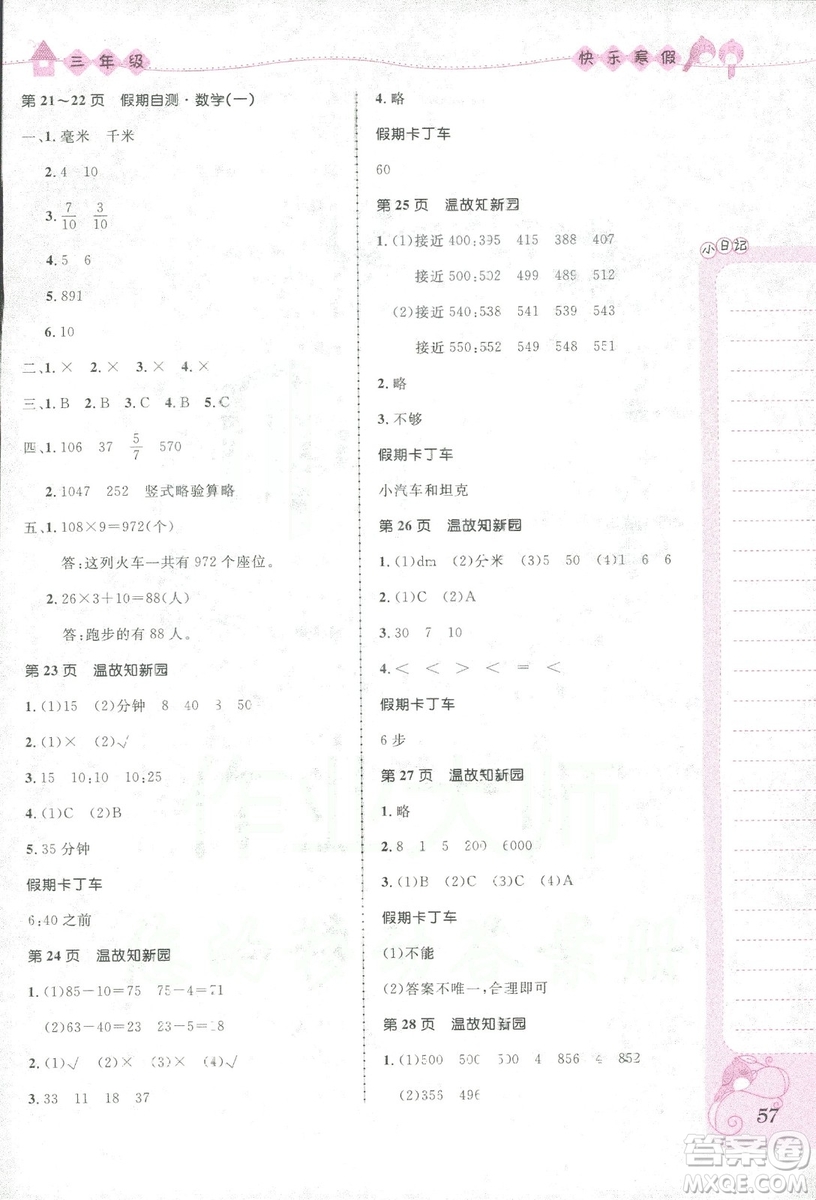 三年级
快乐寒假
第21～22页 假期自测·数学(一)
一、1.毫米 千米
2.4 10
3.7/10 3/10
4.5 6
5.891
6.10
二、1.× 2.× 3.× 4.×
三、1.B 2.B 3.C 4.B 5.C
四、1.106 37 5/7 570
2.1047 252 竖式略验算略
五、1.108×9=972(个)
答:这列火车一共有972个座位。
2.26×3+10=88(人)
答:跑步的有88人。
第23页 温故知新园
1.(1)15 (2)分钟 8 40 8 50
2.(1)× (2)√
3.15 10:10 10:25
4.(1)C (2)B
5.35分钟
假期卡丁车
6:40之前
第24页 温故知新园
1.(1)85-10=75 75-4=71
(2)63-40=23 23-5=18
2.(1)√ (2)× (3)× (4)√
3.33 11 18 37
4.略
假期卡丁车
60
第25页 温故知新园
1.(1)接近400:395 415 388 407
接近500:502 499 489 512
(2)接近540:538 541 539 543
接近550:552 549 548 551
2.略
3.不够
假期卡丁车
小汽车和坦克
第26页 温故知新园
1.(1)dm (2)分米 (3)5 50 (4)1 6 6
2.(1)C (2)A
3.30 7 10
4.< < > < = <
假期卡丁车
6步
第27页 温故知新园
1.略
2.8 1 5 200 6000
3.(1)B (2)C (3)C (4)A
假期卡丁车
(1)不能
(2)答案不唯一,合理即可
第28页 温故知新园
1.(1)500 500 4 856 4 852
(2)356 496
小日记
57
作业大师
答案圈
MXQE.COM